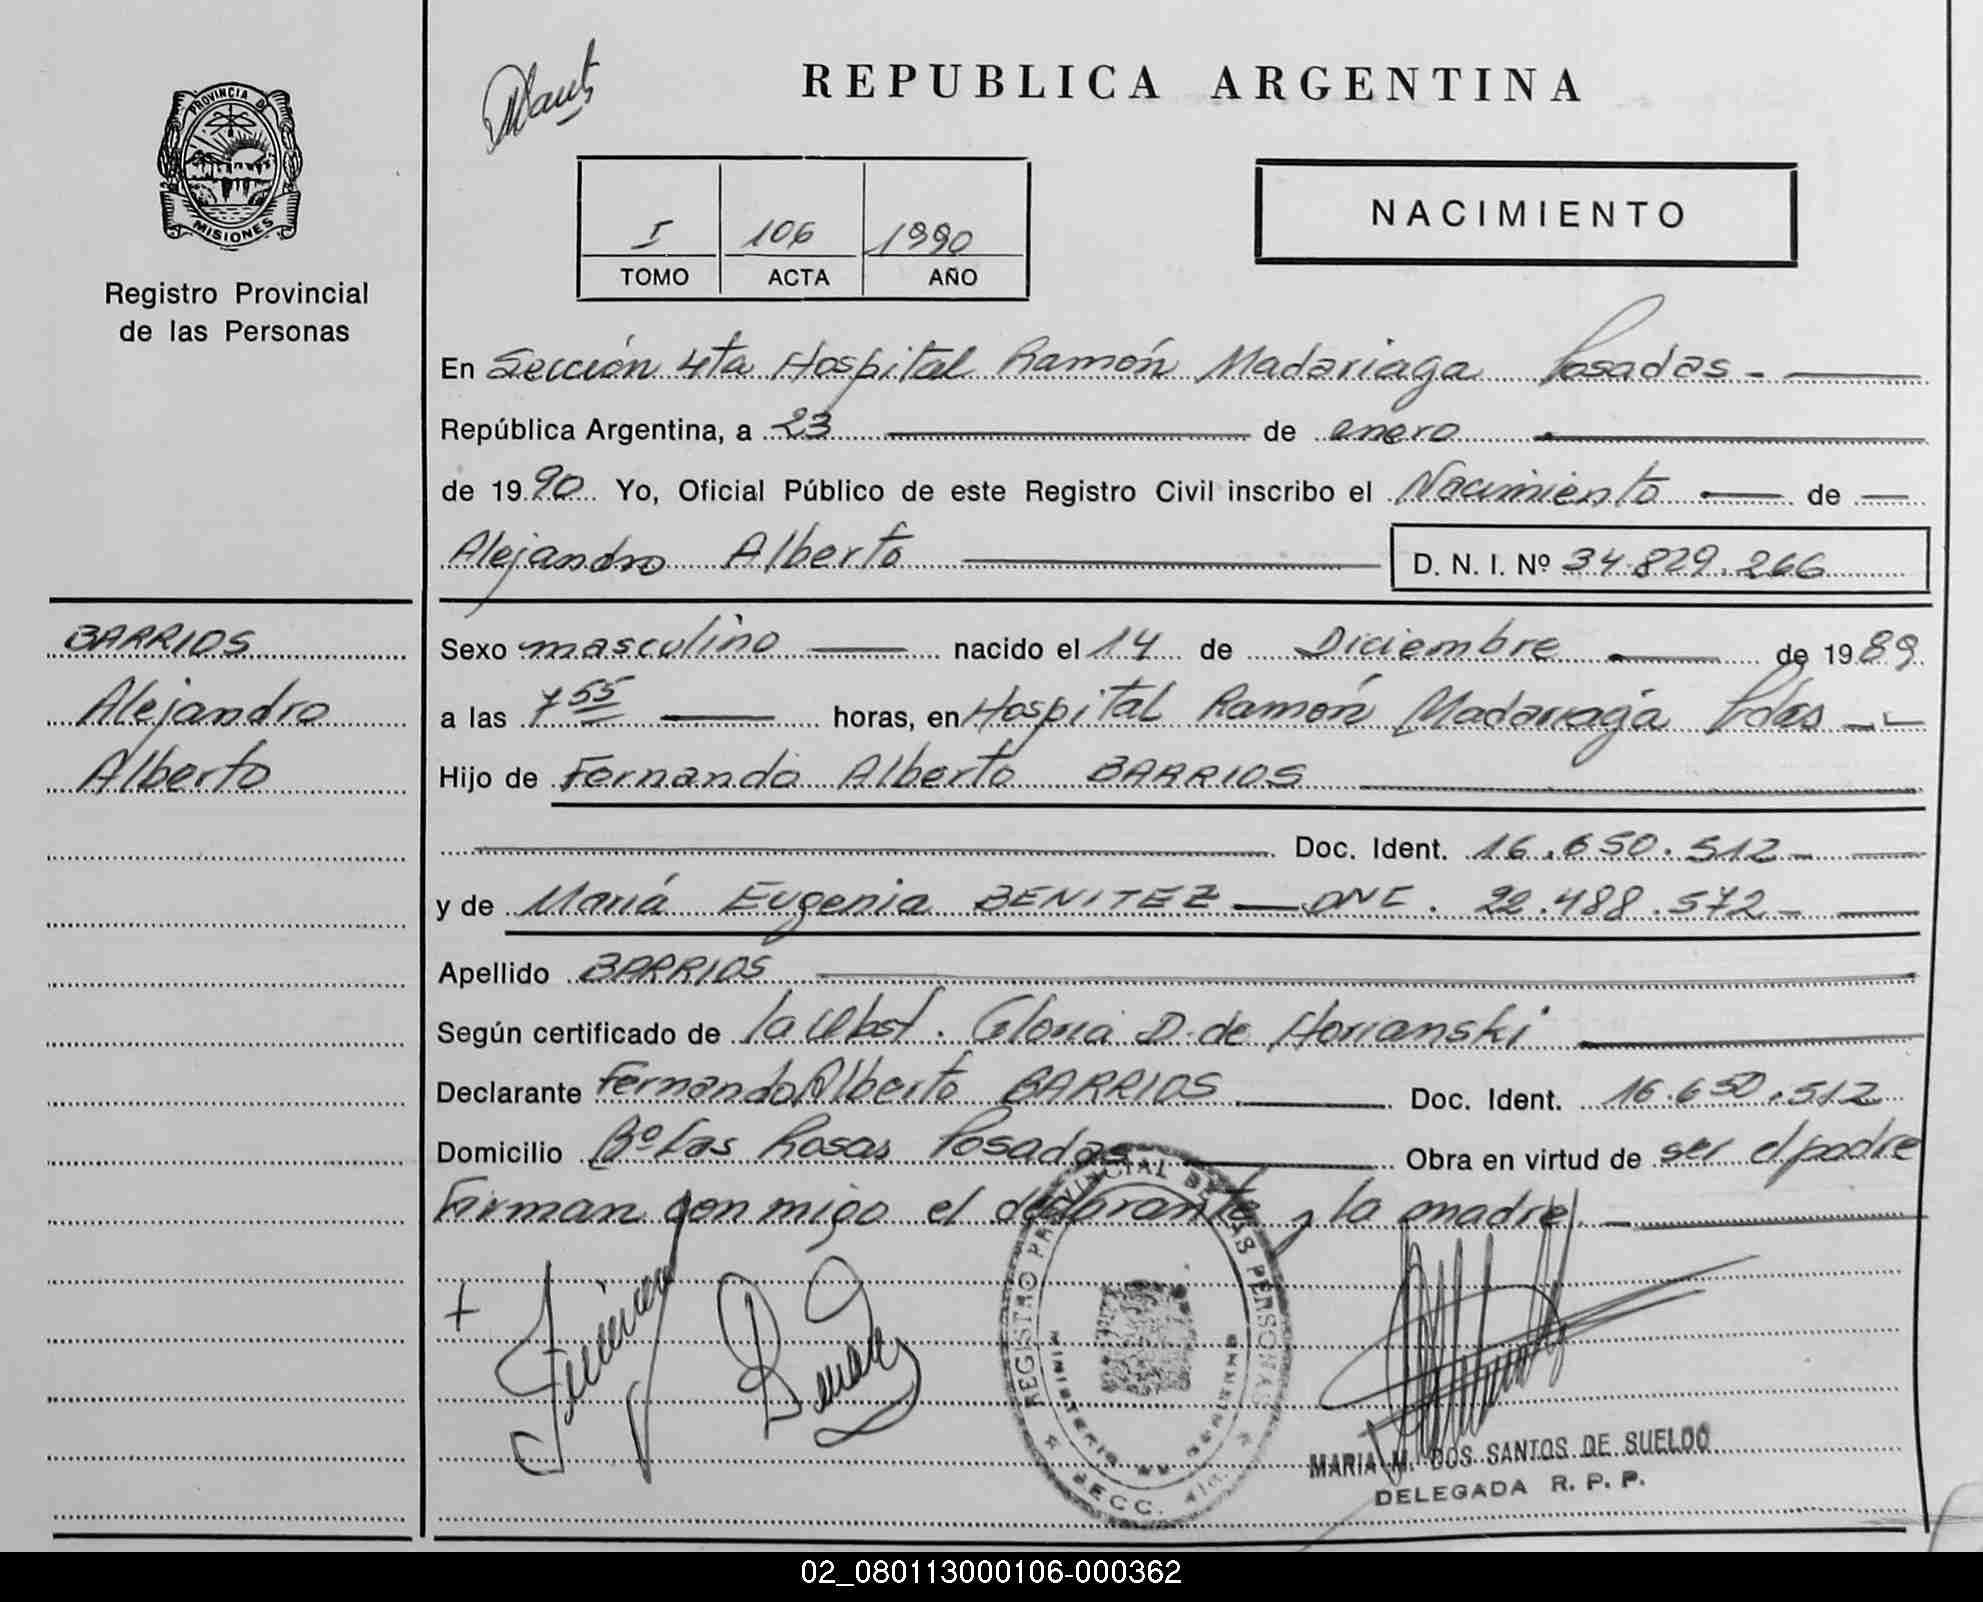 REPUBLICA ARGENTINA
PROVINCIA DE
MISIONES
Registro Provincial
de las Personas
I 106 1990
TOMO ACTA AÑO
NACIMIENTO
En Sección 4ta Hospital Ramón Madariaga Posadas -
República Argentina, a 23 de enero
de 1990 Yo, Oficial Público de este Registro Civil inscribo el Nacimiento de
Alejandro Alberto
D. N. I. Nº 34.829.266
BARRIOS
Alejandro
Alberto
Sexo masculino nacido el 14 de Diciembre de 1989
a las 7 55 horas, en Hospital Ramón Madariaga Pdas
Hijo de Fernando Alberto BARRIOS
Doc. Ident. 16.650.512-
y de María Eugenia BENITEZ — DNI. 22.488.572-
Apellido BARRIOS
Según certificado de la Obst. Gloria D. de Horianski
Declarante Fernando Alberto BARRIOS Doc. Ident. 16.650.512
Domicilio Bº Las Rosas Posadas Obra en virtud de ser el padre
Firman con migo el declarante y la madre.
REGISTRO PROVINCIAL DE LAS PERSONAS
MINISTERIO DE GOBIERNO
SECC. 4ta.
MARIA M. DOS SANTOS DE SUELDO
DELEGADA R. P. P.
02_080113000106-000362